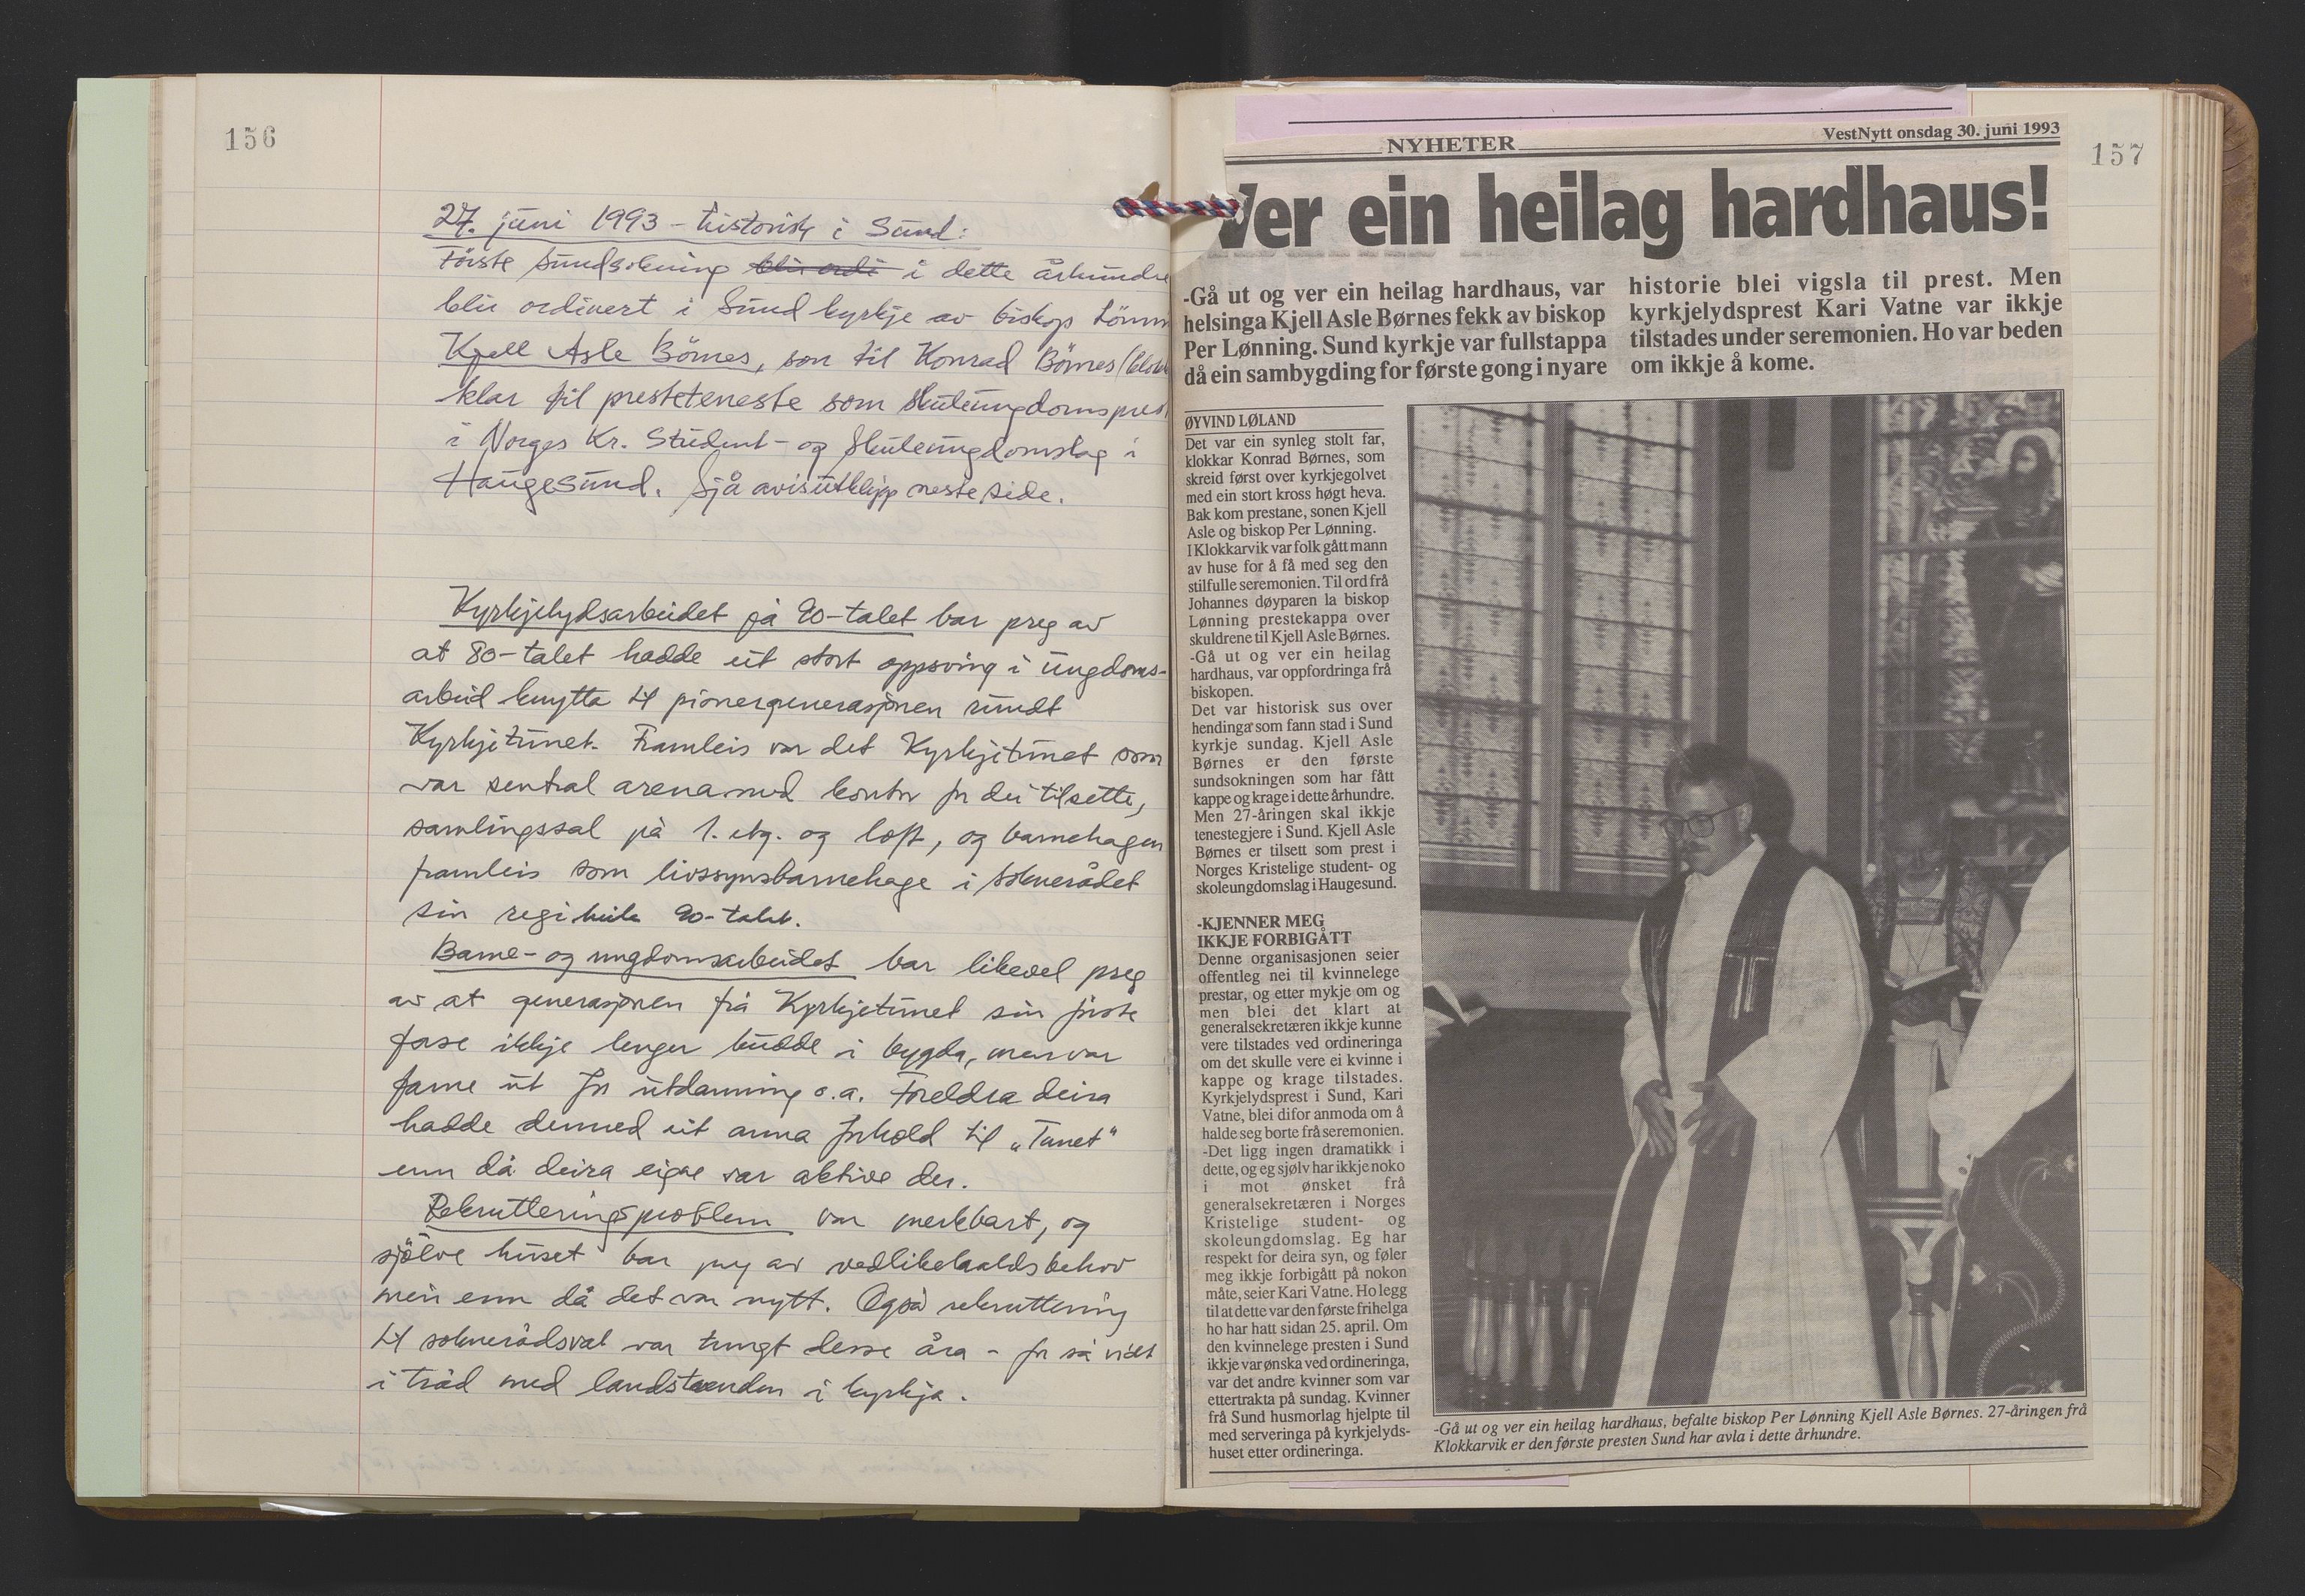 156
27. juni 1993 - historisk i Sund:
Første sundsokning blir ordi i dette århundre
blir ordinert i Sund kyrkje av biskop Lønn
Kjell Asle Børnes, son til Konrad Børnes (klokk
klar til presteteneste som skuleungdomsprest
i Norges Kr. Student- og Skuleungdomslag i
Haugesund. Sjå avisutklipp neste side.
Kyrkjelydsarbeidet på 90-talet bar preg av
at 80-talet hadde eit stort oppsving i ungdoms-
arbeid knytta til pionergenerasjonen rundt
Kyrkjetunet. Framleis var det Kyrkjetunet som
var sentral arena med kontor for dei tilsette,
samlingssal på 1. etg. og loft, og barnehagen
framleis som livssynsbarnehage i soknerådet
sin regi heile 90-talet.
Barne- og ungdomsarbeidet bar likevel preg
av at generasjonen frå Kyrkjetunet sin første
fase ikkje lenger budde i bygda, men var
farne ut for utdanning o.a. Foreldra deira
hadde dermed eit anna forhold til „Tunet"
enn då deira eigne var aktive der.
Rekrutteringsproblem var merkbart, og
sjølve huset bar preg av vedlikehaldsbehov
meir enn då det var nytt. Også rekruttering
til soknerådsval var tungt desse åra - for så vidt
i tråd med landstrenden i kyrkja.
157
NYHETER
VestNytt onsdag 30. juni 1993
Ver ein heilag hardhaus!
-Gå ut og ver ein heilag hardhaus, var
helsinga Kjell Asle Børnes fekk av biskop
Per Lønning. Sund kyrkje var fullstappa
då ein sambygding for første gong i nyare
historie blei vigsla til prest. Men
kyrkjelydsprest Kari Vatne var ikkje
tilstades under seremonien. Ho var beden
om ikkje å kome.
ØYVIND LØLAND
Det var ein synleg stolt far,
klokkar Konrad Børnes, som
skreid først over kyrkjegolvet
med ein stort kross høgt heva.
Bak kom prestane, sonen Kjell
Asle og biskop Per Lønning.
I Klokkarvik var folk gått mann
av huse for å få med seg den
stilfulle seremonien. Til ord frå
Johannes døyparen la biskop
Lønning prestekappa over
skuldrene til Kjell Asle Børnes.
-Gå ut og ver ein heilag
hardhaus, var oppfordringa frå
biskopen.
Det var historisk sus over
hendinga som fann stad i Sund
kyrkje sundag. Kjell Asle
Børnes er den første
sundsokningen som har fått
kappe og krage i dette århundre.
Men 27-åringen skal ikkje
tenestegjere i Sund. Kjell Asle
Børnes er tilsett som prest i
Norges Kristelige student- og
skoleungdomslag i Haugesund.
-KJENNER MEG
IKKJE FORBIGÅTT
Denne organisasjonen seier
offentleg nei til kvinnelege
prestar, og etter mykje om og
men blei det klart at
generalsekretæren ikkje kunne
vere tilstades ved ordineringa
om det skulle vere ei kvinne i
kappe og krage tilstades.
Kyrkjelydsprest i Sund, Kari
Vatne, blei difor anmoda om å
halde seg borte frå seremonien.
-Det ligg ingen dramatikk i
dette, og eg sjølv har ikkje noko
i mot ønsket frå
generalsekretæren i Norges
Kristelige student- og
skoleungdomslag. Eg har
respekt for deira syn, og føler
meg ikkje forbigått på nokon
måte, seier Kari Vatne. Ho legg
til at dette var den første frihelga
ho har hatt sidan 25. april. Om
den kvinnelege presten i Sund
ikkje var ønska ved ordineringa,
var det andre kvinner som var
ettertrakta på sundag. Kvinner
frå Sund husmorlag hjelpte til
med serveringa på kyrkjelyds-
huset etter ordineringa.
-Gå ut og ver ein heilag hardhaus, befalte biskop Per Lønning Kjell Asle Børnes. 27-åringen frå
Klokkarvik er den første presten Sund har avla i dette århundre.